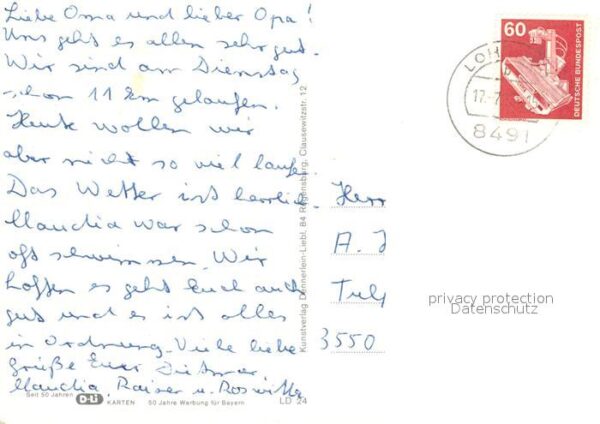 Liebe Oma und lieber Opa!
Uns geht es allen sehr gut.
Wir sind am Dienstag
schon 11 km gelaufen.
Heute wollen wir
aber nicht so viel laufen.
Das Wetter ist herrlich.
Claudia war schon
oft schwimmen. Wir
hoffen es geht Euch auch
gut und es ist alles
in Ordnung. Viele liebe
Grüße Euer Dietmar
Claudia, Rainer u. Roswitha
Seit 50 Jahren D-Li KARTEN 50 Jahre Werbung für Bayern LD 24
Kunstverlag Dönnerlein-Liebl, 84 Regensburg, Clausewitzstr. 12
60
DEUTSCHE BUNDESPOST
LOH
17.-7.
8491
Herr
A. J
3550
privacy protection
Datenschutz